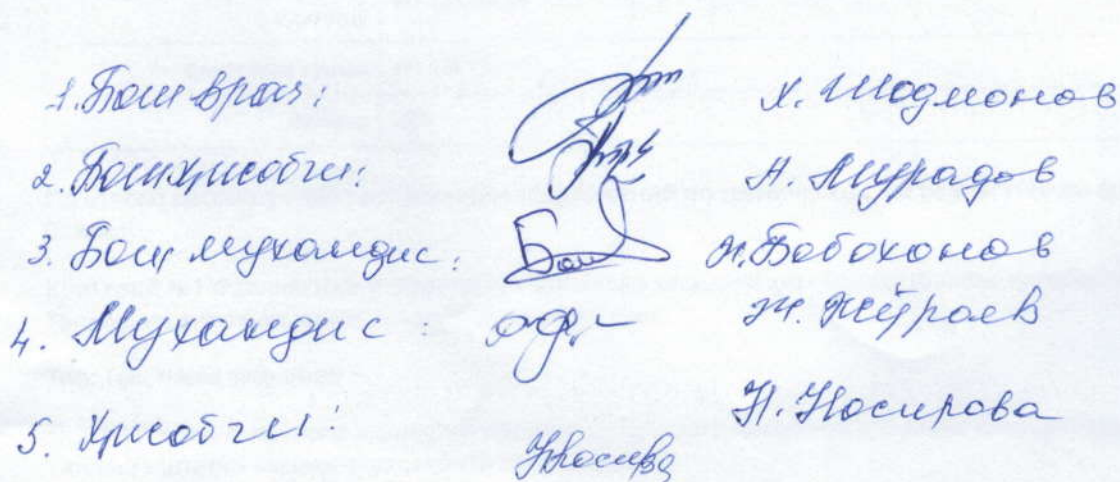 1. Бош врач: Х. Шодмонов
2. Бош хисобчи: Н. Мурадов
3. Бош мухандис: Н. Бобохонов
4. Мухандис: Ж. Жўраев
5. Хисобчи: Н. Носирова